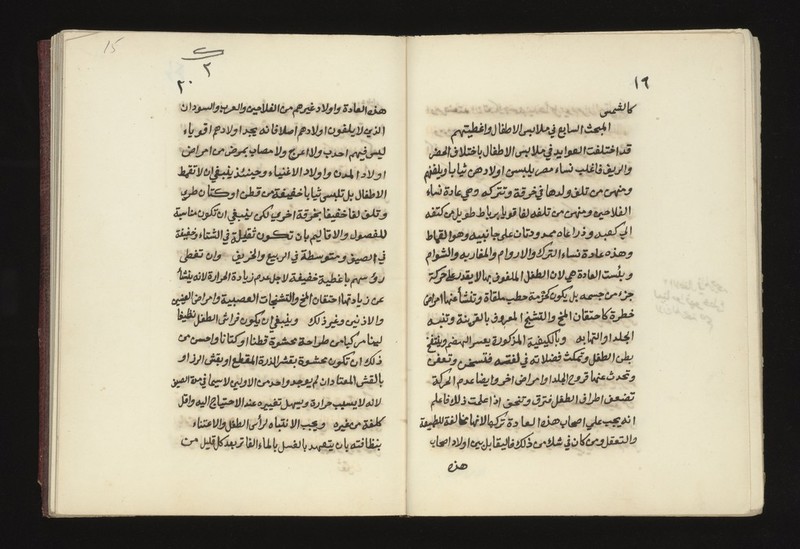 ١٦
كالشمس
المبحث السابع في ملابس الاطفال واغطيتهم
قد اختلفت العوايد في ملابس الاطفال باختلاف الحضر
والريف فاغلب نساء مصر يلبسن اولادهن ثيابا ويلففنهم
ومنهن من تلف ولدها في خرقة وتتركه وهي عادة نساء
الفلاحين ومنهن من تلفه لفا قويا برباط طويل من كتفه
الي كعبه وذراعاه ممدودتان على جانبيه وهو القماط
وهذه عادة نساء الترك والاروام والمغاربه والشوام
وبئست العادة هي لان الطفل الملفوف بها لا يقدر على حركة
جزء من جسمه بل يكون كحزمة حطب ملقاة وتنشأ عنها امراض
خطرة كاحتقان المخ والتشنج المعروف بالقرينة وتنبه
الجلد والتهابه وبالكيفية المذكورة يعسر الهضم وينتفخ
بطن الطفل وتمكث فضلاته في لفته فتسخن وتعفن
وتحدث عنها قروح الجلد وامراض اخر وايضا عدم الحركة
تضعف اطراف الطفل فترق وتنحف اذا علمت ذلك فاعلم
انه يجب علي اصحاب هذه العادة تركها لانها مخالفة للطبيعة
والتعقل ومن كان في شك من ذلك فاليقابل بين اولاد اصحاب
هذه
15
٢
٢٠
هذه العادة واولاد غيرهم من الفلاحين والعرب والسودان
الذين لا يلفون اولادهم اصلا فانه يجد اولادهم اقوياء
ليس فيهم احدب ولا اعرج ولا مصاب بمرض من امراض
اولاد المدن واولاد الاغنياء وحينئذ ينبغي ان لا تقمط
الاطفال بل تلبس ثيابا خفيفة من قطن او كتان طري
وتلف لفا خفيفا بخرقة اخري لكن ينبغي ان تكون مناسبة
للفصول والاقاليم بان تكون ثقيلة في الشتاء وخفيفة
في الصيف ومتوسطة في الربيع والخريف وان تغطي
رؤسهم باغطية خفيفة لاجل عدم زيادة الحرارة لانه ينشأ
عن زيادتها احتقان المخ والتشنجات العصبية وامراض العينين
والاذنين وغير ذلك وينبغي ان يكون فراش الطفل نظيفا
لينا مركبا من طراحة محشوة قطنا او كتانا واحسن من
ذلك ان تكون محشوة بقشر الذرة المقطع او بقش الرز او
بالقش المعتاد ان لم يوجد واحد من الاولين لاسيما في مدة الصيف
لانه لا يسبب حرارة ويسهل تغييره عند الاحتياج اليه واقل
كلفة من غيره ويجب الانتباه لرأس الطفل والاعتناء
بنظافته بان يتعهد بالغسل بالماء الفاتر بعد كل قليل من